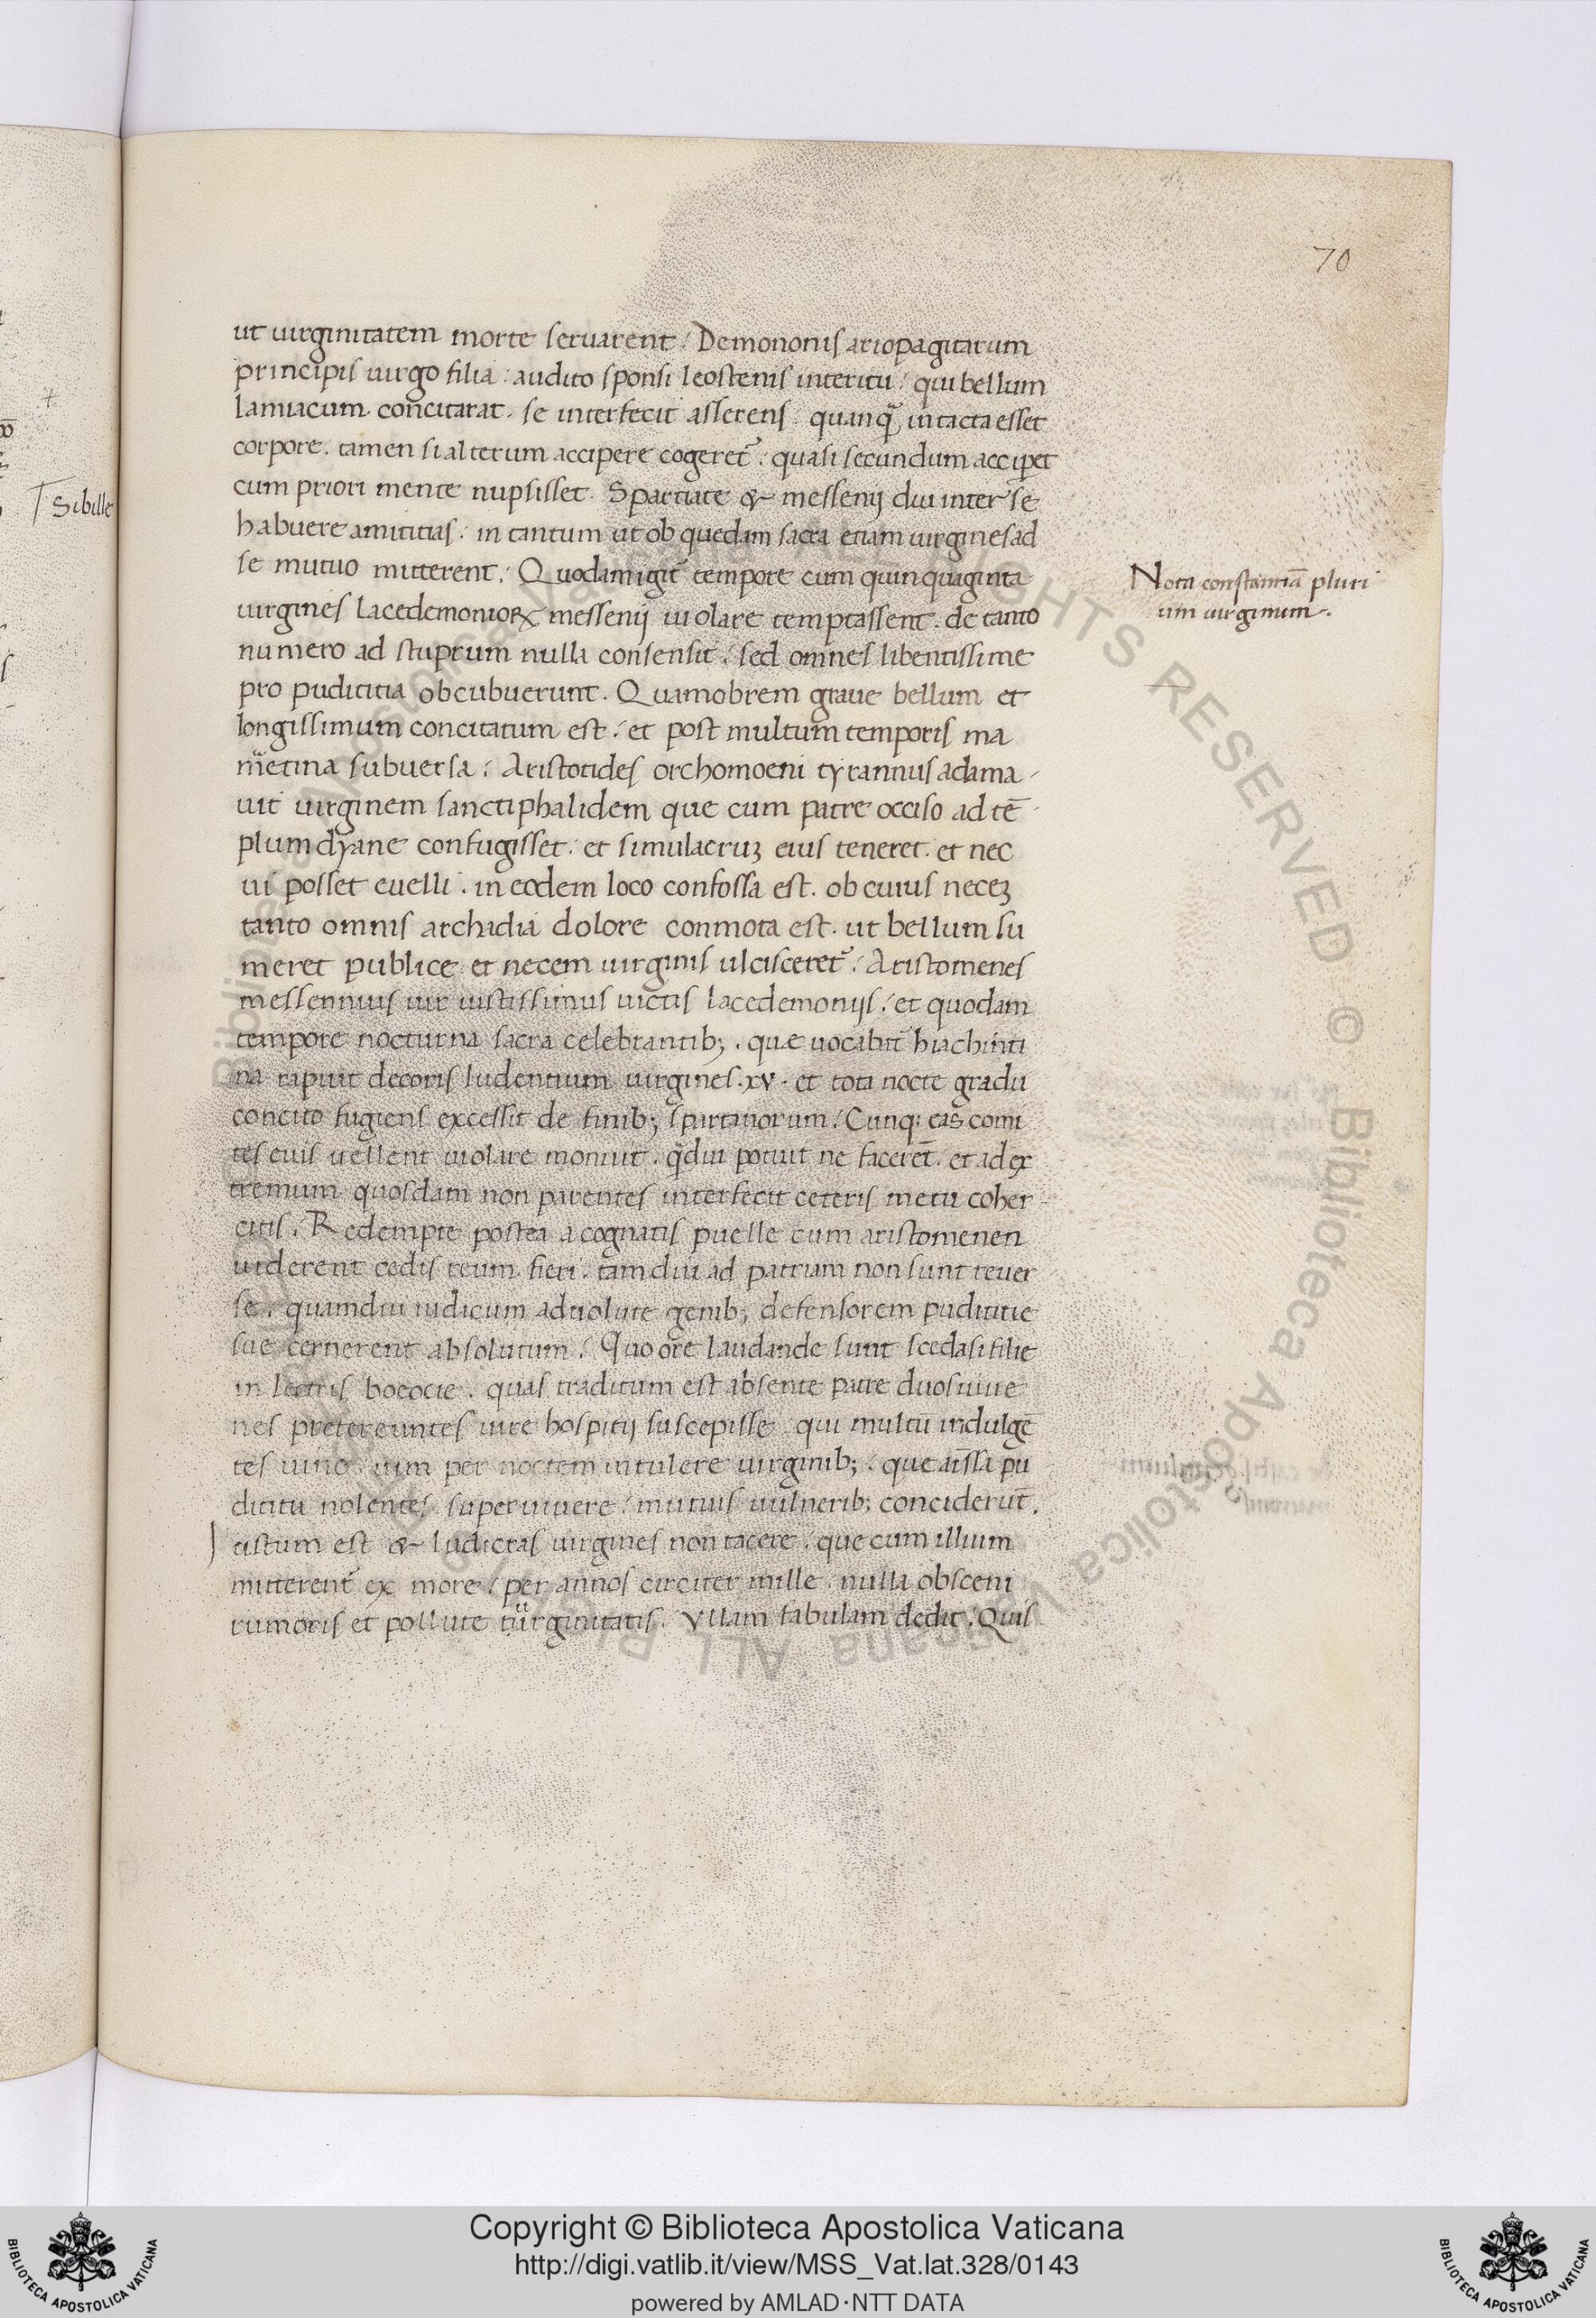 70
ut uirginitatem morte seruarent. Demononis ariopagitarum
principis uirgo filia. audito sponsi leostenis interitu. qui bellum
lamiacum concitarat. se interfecit asserens quanq̃ intacta esset
corpore. tamen si alterum accipere cogeret᷑. quasi secundum accipet
cum priori mente nupsisset. Spartiate & messenij diu inter se
habuere amicitias. in tantum ut ob quedam sacra etiam uirgines ad
se mutuo mitterent. Quodam igit᷑ tempore cum quinquaginta
uirgines lacedemonioꝝ messenij uiolare temptassent. de tanto
numero ad stuprum nulla consensit. sed omnes libentissime
pro pudititia obcubuerunt. Quamobrem graue bellum et
longissimum concitatum est. et post multum temporis ma
metina subuersa. Aristotides orchomoeni tyrannus adama
uit uirginem sanctiphalidem que cum patre occiso ad tē
plum dyane confugisset. et simulacruꝫ eius teneret. et nec
ui posset euelli. in eodem loco confossa est. ob cuius neceꝫ
tanto omnis archadia dolore conmota est. ut bellum su
meret publice et necem uirginis ulcisceret᷑. Aristomenes
messennius uir iustissimus uictis lacedemonijs. et quodam
tempore nocturna sacra celebrantib;. quae uocabāt hiachinti
na rapuit decoris ludentium uirgines .xv. et tota nocte gradu
concito fugiens excessit de finib; spartanorum. Cunq; eas comi
tes euis uellent uiolare monuit. q̃diu potuit ne facerēt. et ad ex
tremum quosdam non parentes interfecit ceteris metu coher
citis. Redempte postea a cognatis puelle cum aristomenen
uiderent cedis reum fieri. tamdiu ad patriam non sunt reuer
se. quamdiu iudicum aduolute genib; defensorem pudititie
sue cernerent absolutum. Quo ore laudande sunt scedasi filie
in lectris boeocie. quas traditum est absente patre duos iuue
nes pretereuntes iure hospitij suscepisse. qui multū indulgē
tes uino. uim per noctem intulere uirginib;. que amissa pu
dititia nolentes superuiuere. mutuis uulnerib; conciderūt.
Iustum est & ludictas uirgines non tacere. que cum illium
mitterent᷑ ex more. per annos circiter mille. nulla obsceni
rumoris et pollute uirginitatis. Vllam fabulam dedit. Quis
Nota constantiā pluri
um uirginum.
Sibille
Copyright © Biblioteca Apostolica Vaticana
http://digi.vatlib.it/view/MSS_Vat.lat.328/0143
powered by AMLAD·NTT DATA